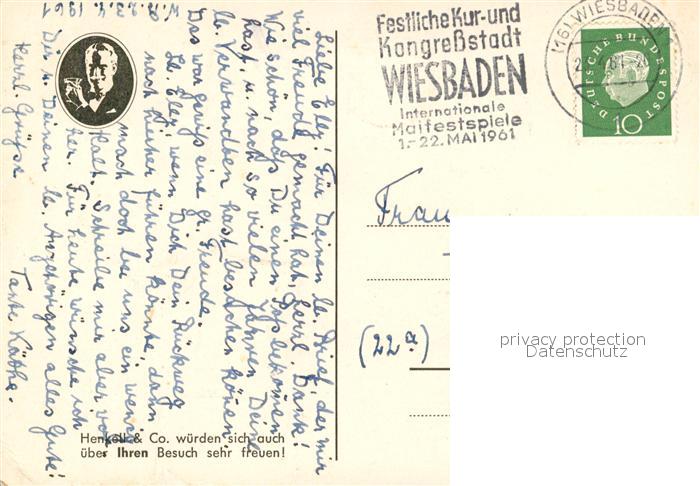 W. B. 23.4.1961
Liebe Elly! Für Deinen lb. Brief, der mir
viel Freude gemacht hat, herzl. Dank!
Wie schön, daß Du einen Paß bekommen
hast, u. nach so vielen Jahren Deine
lb. Verwandten hast besuchen können.
Das war gewiß eine gr. Freude.
Lb. Elly! wenn Dich Dein Rückweg
nach hierher führen könnte, dann
mach doch bei uns ein wenig
Halt. Schreibe mir aber vor-
her. Für heute wünsche ich
Dir u. Deinen lb. Angehörigen alles Gute!
Herzl. Grüße Tante Käthe.
Henkell & Co. würden sich auch
über Ihren Besuch sehr freuen!
Festliche Kur- und
Kongreßstadt
WIESBADEN
Internationale
Maifestspiele
1.-22. MAI 1961
(16) WIESBADEN
DEUTSCHE BUNDESPOST
10
Frau
(22a)
privacy protection
Datenschutz